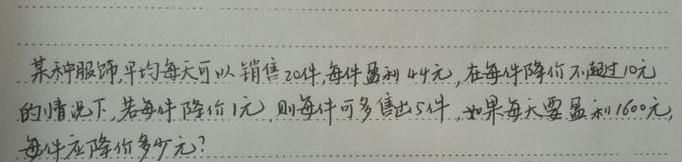 某种服饰,平均每天可以销售20件,每件盈利44元,在每件降价不超过10元
的情况下,若每件降价1元,则每件可多售出5件,如果每天要盈利1600元,
每件应降价多少元?